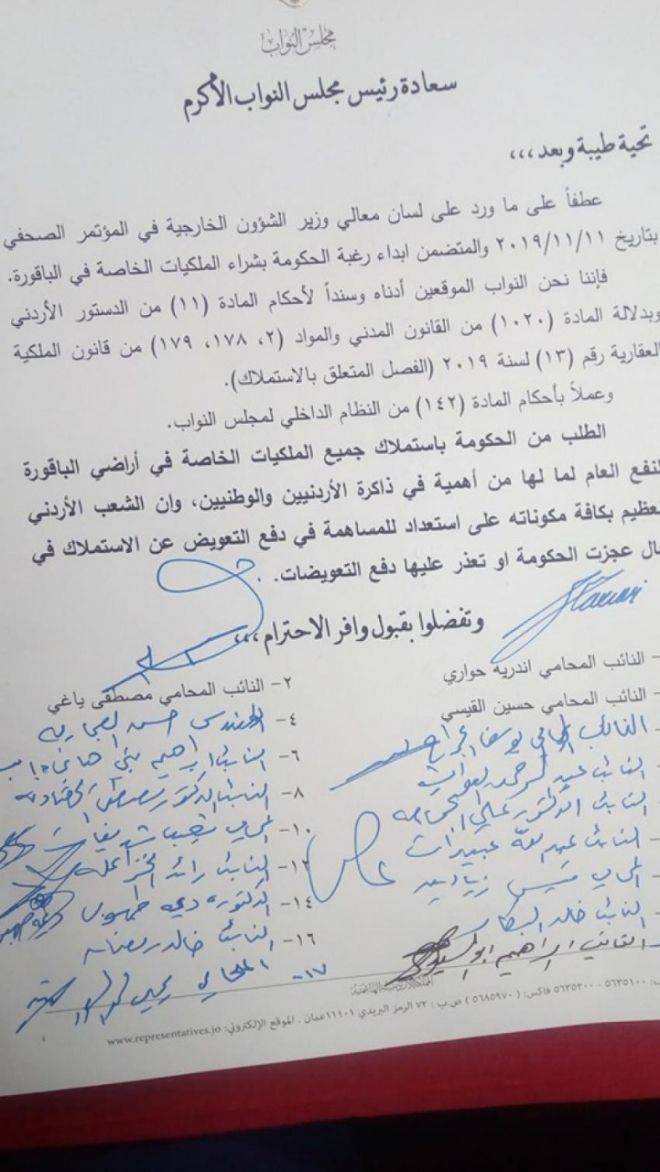 مجلس النواب
سعادة رئيس مجلس النواب الأكرم
تحية طيبة وبعد ،،،
عطفاً على ما ورد على لسان معالي وزير الشؤون الخارجية في المؤتمر الصحفي
بتاريخ ٢٠١٩/١١/١١ والمتضمن ابداء رغبة الحكومة بشراء الملكيات الخاصة في الباقورة.
فإننا نحن النواب الموقعين أدناه وسنداً لأحكام المادة (١١) من الدستور الأردني
وبدلالة المادة (١٠٢٠) من القانون المدني والمواد (٢، ١٧٨، ١٧٩) من قانون الملكية
العقارية رقم (١٣) لسنة ٢٠١٩ (الفصل المتعلق بالاستملاك).
وعملاً بأحكام المادة (١٤٢) من النظام الداخلي لمجلس النواب.
الطلب من الحكومة باستملاك جميع الملكيات الخاصة في أراضي الباقورة
لنفع العام لما لها من أهمية في ذاكرة الأردنيين والوطنيين، وان الشعب الأردني
عظيم بكافة مكوناته على استعداد للمساهمة في دفع التعويض عن الاستملاك في
ال عجزت الحكومة او تعذر عليها دفع التعويضات.
وتفضلوا بقبول وافر الاحترام ،،،
- النائب المحامي اندريه حواري
٢- النائب المحامي مصطفى ياغي
- النائب المحامي حسين القيسي
٤- المهندس
النائب المحامي
٦- النائب ابراهيم بني هاني
النائب عبد الرحمن
٨- النائب الدكتور مصطفى
النائب الدكتور علي
١٠- المحامي
النائب عبد الله عبيدات
١٢- النائب رائد الخزاعلة
المحامي قيس زيادين
١٤- الدكتورة ديمة طهبوب
النائب خالد البكار
١٦- النائب خالد رمضان
النائب ابراهيم ابو السيد
١٧- المحامي
٥٦٣٥١٠٠ - ٥٦٣٥٢٠٠ فاكس: ( ٥٦٨٥٩٧٠ ) ص.ب : ٧٢ الرمز البريدي ١١١٠١ عمان . الموقع الإلكتروني: www.representatives.jo